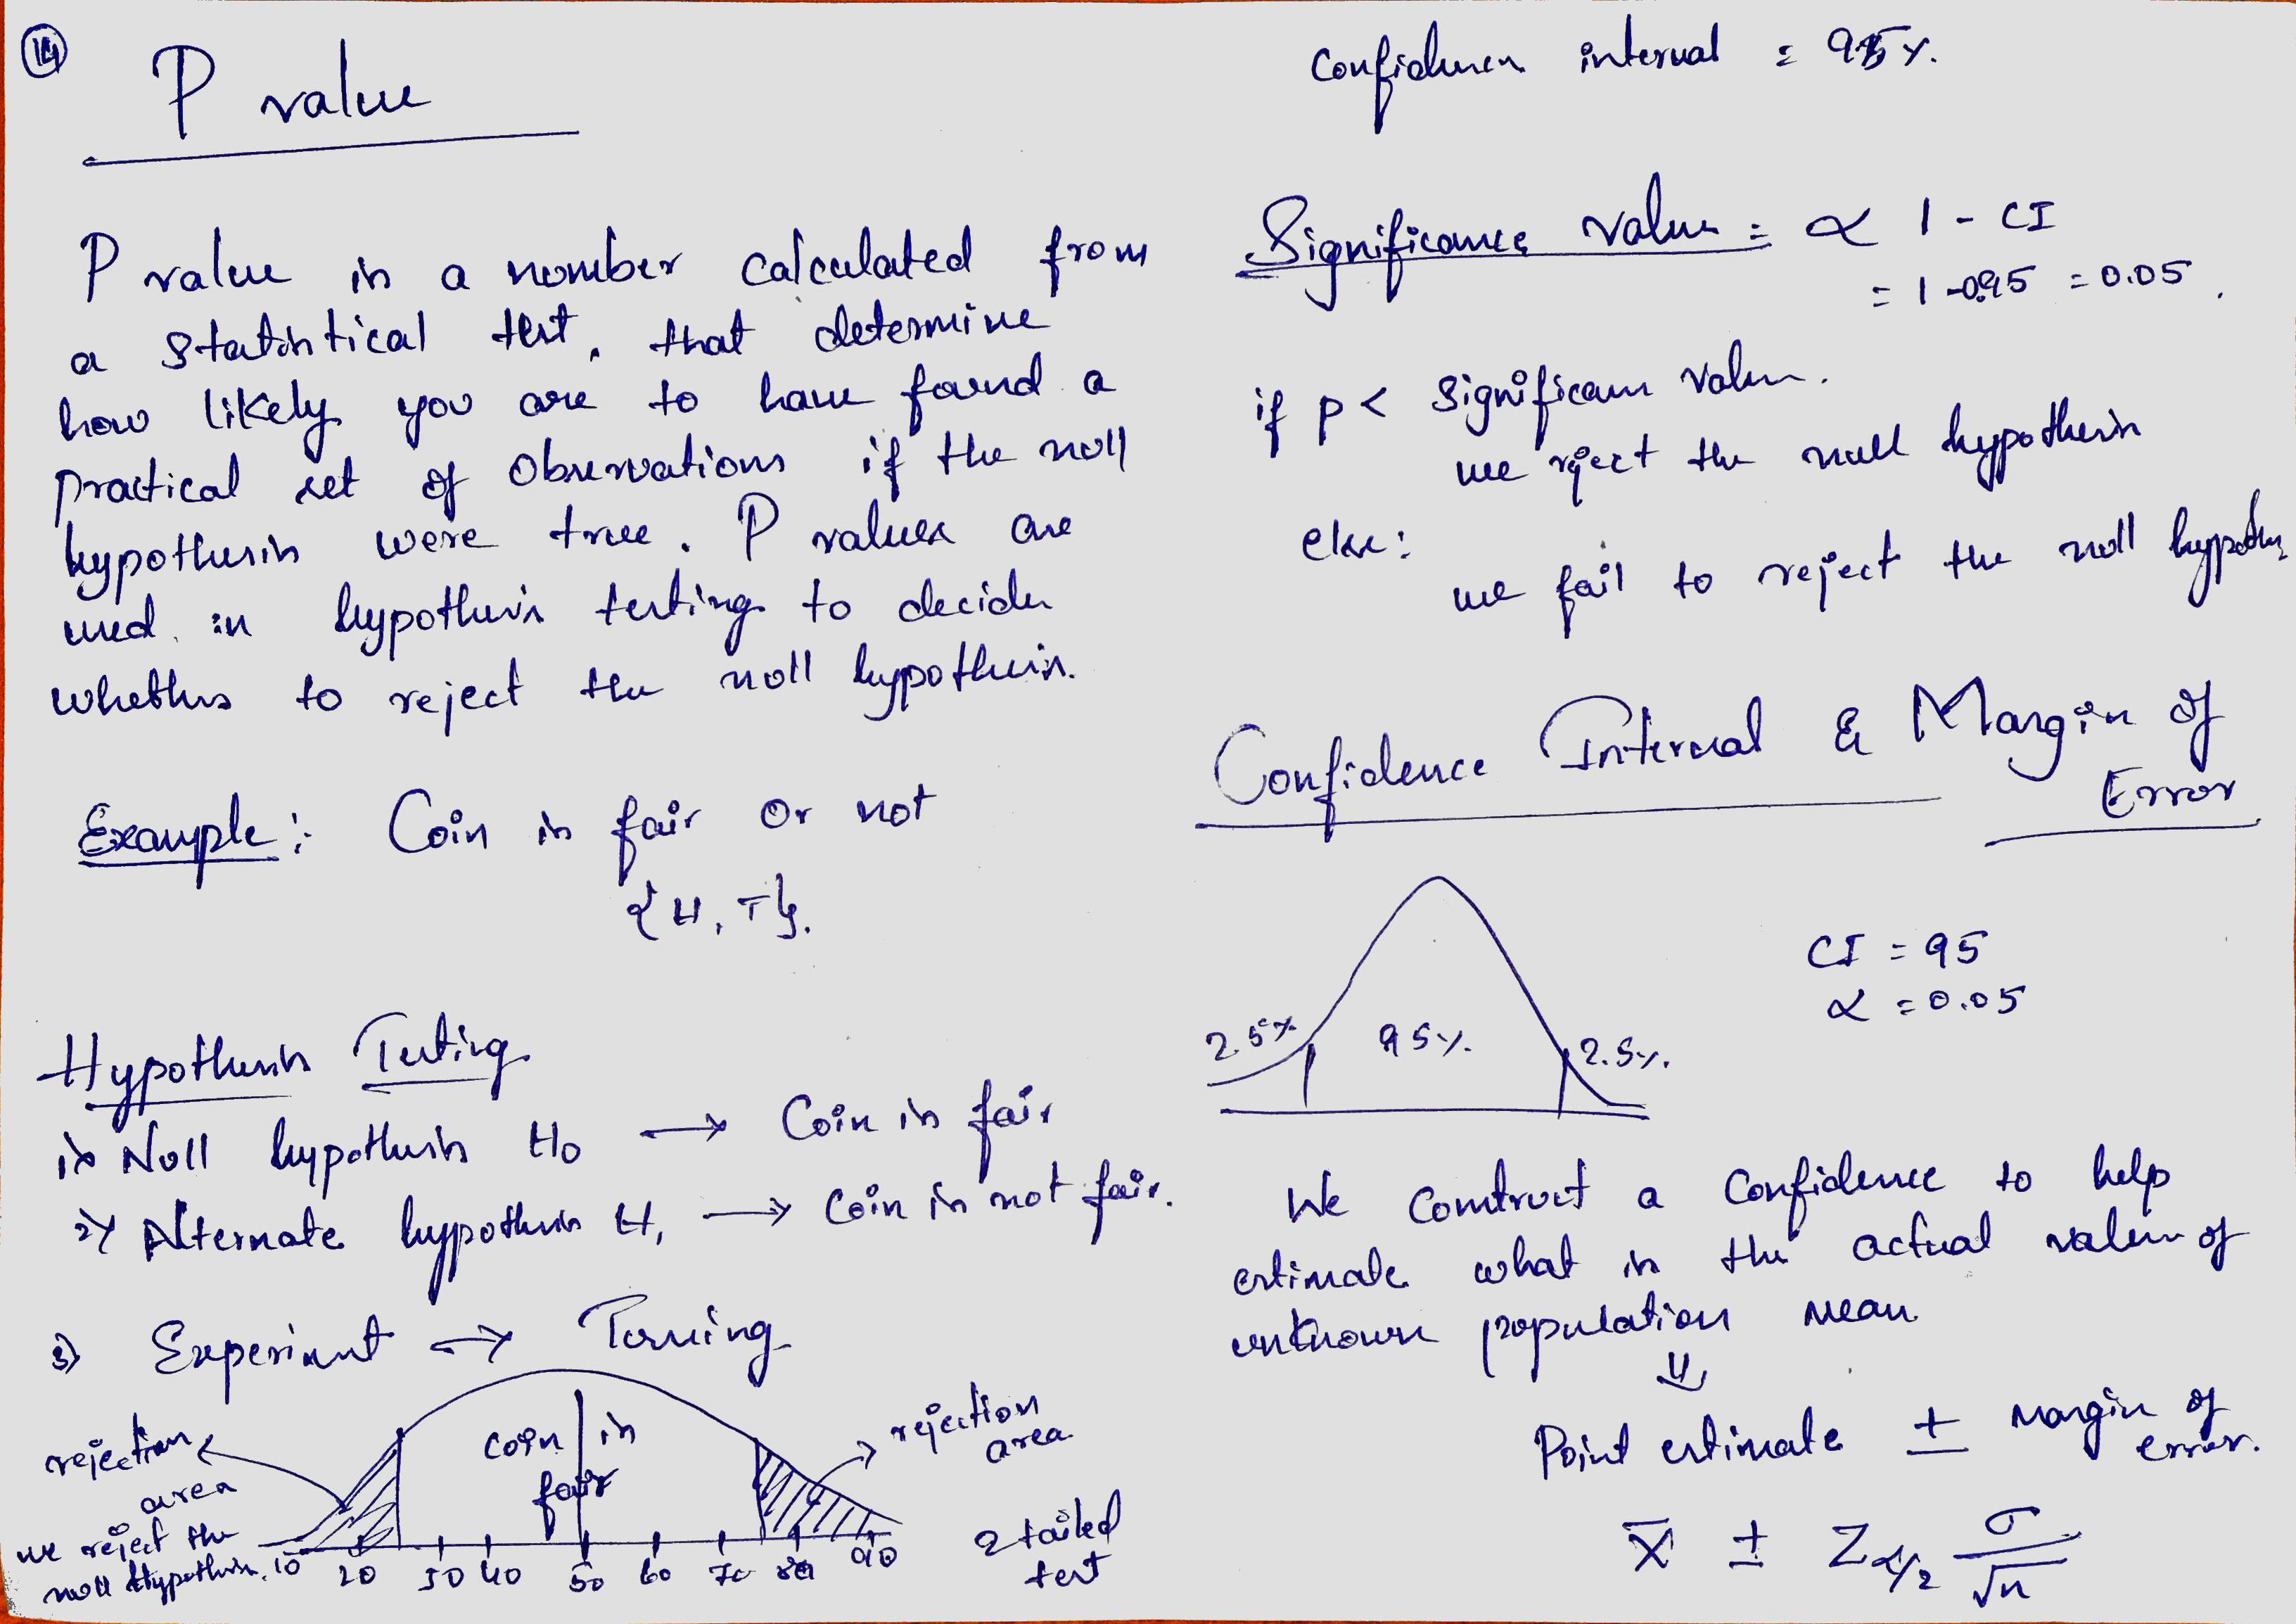 14
P value
P value is a number calculated from
a statistical test, that determine
how likely you are to have found a
practical set of observations if the null
hypothesis were true. P values are
used in hypothesis testing to decide
whether to reject the null hypothesis.
Example: Coin is fair or not
{H, T}.
Hypothesis Testing
1) Null hypothesis H0 → Coin is fair
2) Alternate hypothesis H1 → Coin is not fair.
3) Experiment → Tossing
rejection area
we reject the
null Hypothesis.
coin is
fair
rejection
area
10 20 30 40 50 60 70 80 90
2 tailed
test
Confidence interval = 95%.
Significance value = α 1 - CI
= 1 - 0.95 = 0.05.
if p < Significance value.
we reject the null hypothesis
else:
we fail to reject the null hypothesis
Confidence Interval & Margin of
Error
2.5% 95% 2.5%.
CI = 95
α = 0.05
We construct a Confidence to help
estimate what is the actual value of
unknown population mean
⇓
Point estimate ± Margin of
error.
x̄ ± Zα/2 σ/√n